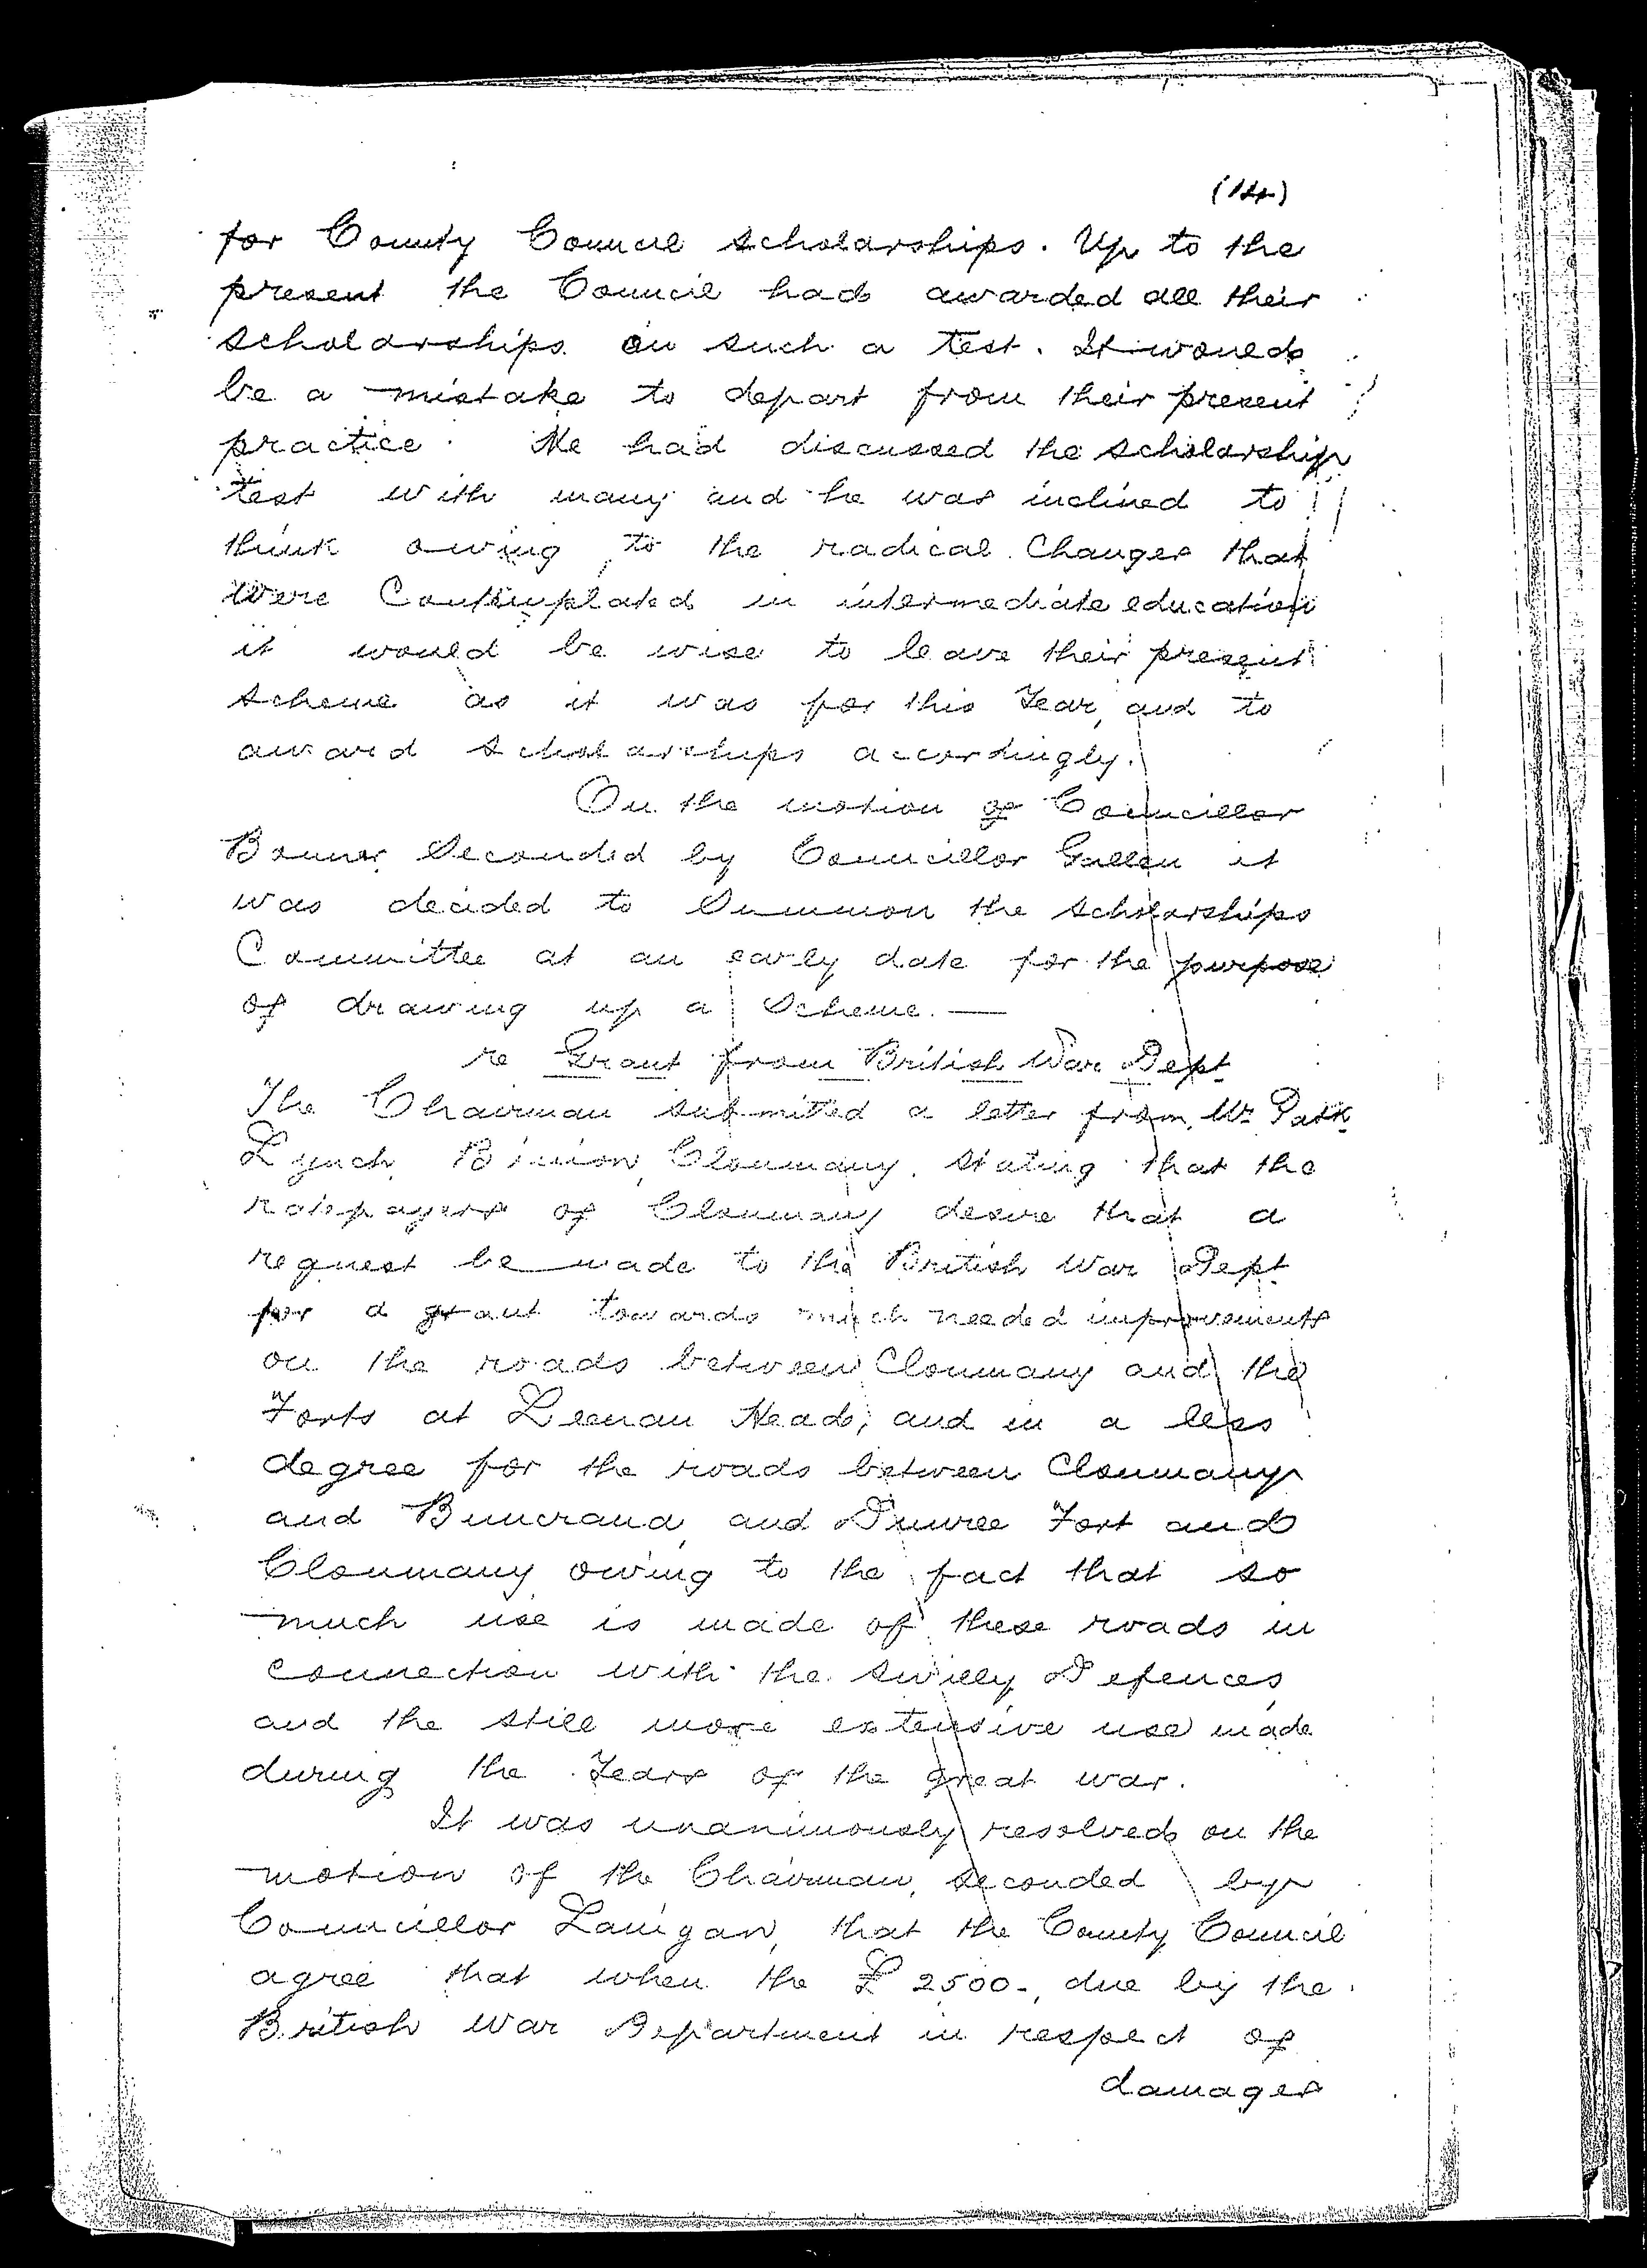 (14)
for County Council scholarships. Up to the
present the Council had awarded all their
scholarships on such a test. It would
be a mistake to depart from their present
practice. He had discussed the scholarship
test with many and he was inclined to
think owing to the radical Changes that
were Contemplated in intermediate education
it would be wise to leave their present
scheme as it was for this Year, and to
award scholarships accordingly.
On the motion of Councillor
Bonner Seconded by Councillor Gallen it
was decided to Summon the scholarships
Committee at an early date for the purpose
of drawing up a Scheme. —
re Grant from British War Dept
The Chairman submitted a letter from Mr Patk
Lynch Binion, Clonmany, stating that the
ratepayers of Clonmany desire that a
request be made to the British War Dept
for a grant towards much needed improvements
on the roads between Clonmany and the
Forts at Leenan Head, and in a less
degree for the roads between Clonmany
and Buncrana, and Dunree Fort and
Clonmany owing to the fact that so
much use is made of these roads in
connection with the Swilly Defences,
and the still more extensive use made
during the Years of the great war.
It was unanimously resolved on the
motion of the Chairman, seconded by
Councillor Lanigan, that the County Council
agree that when the £2500-, due by the
British War Department in respect of
damages